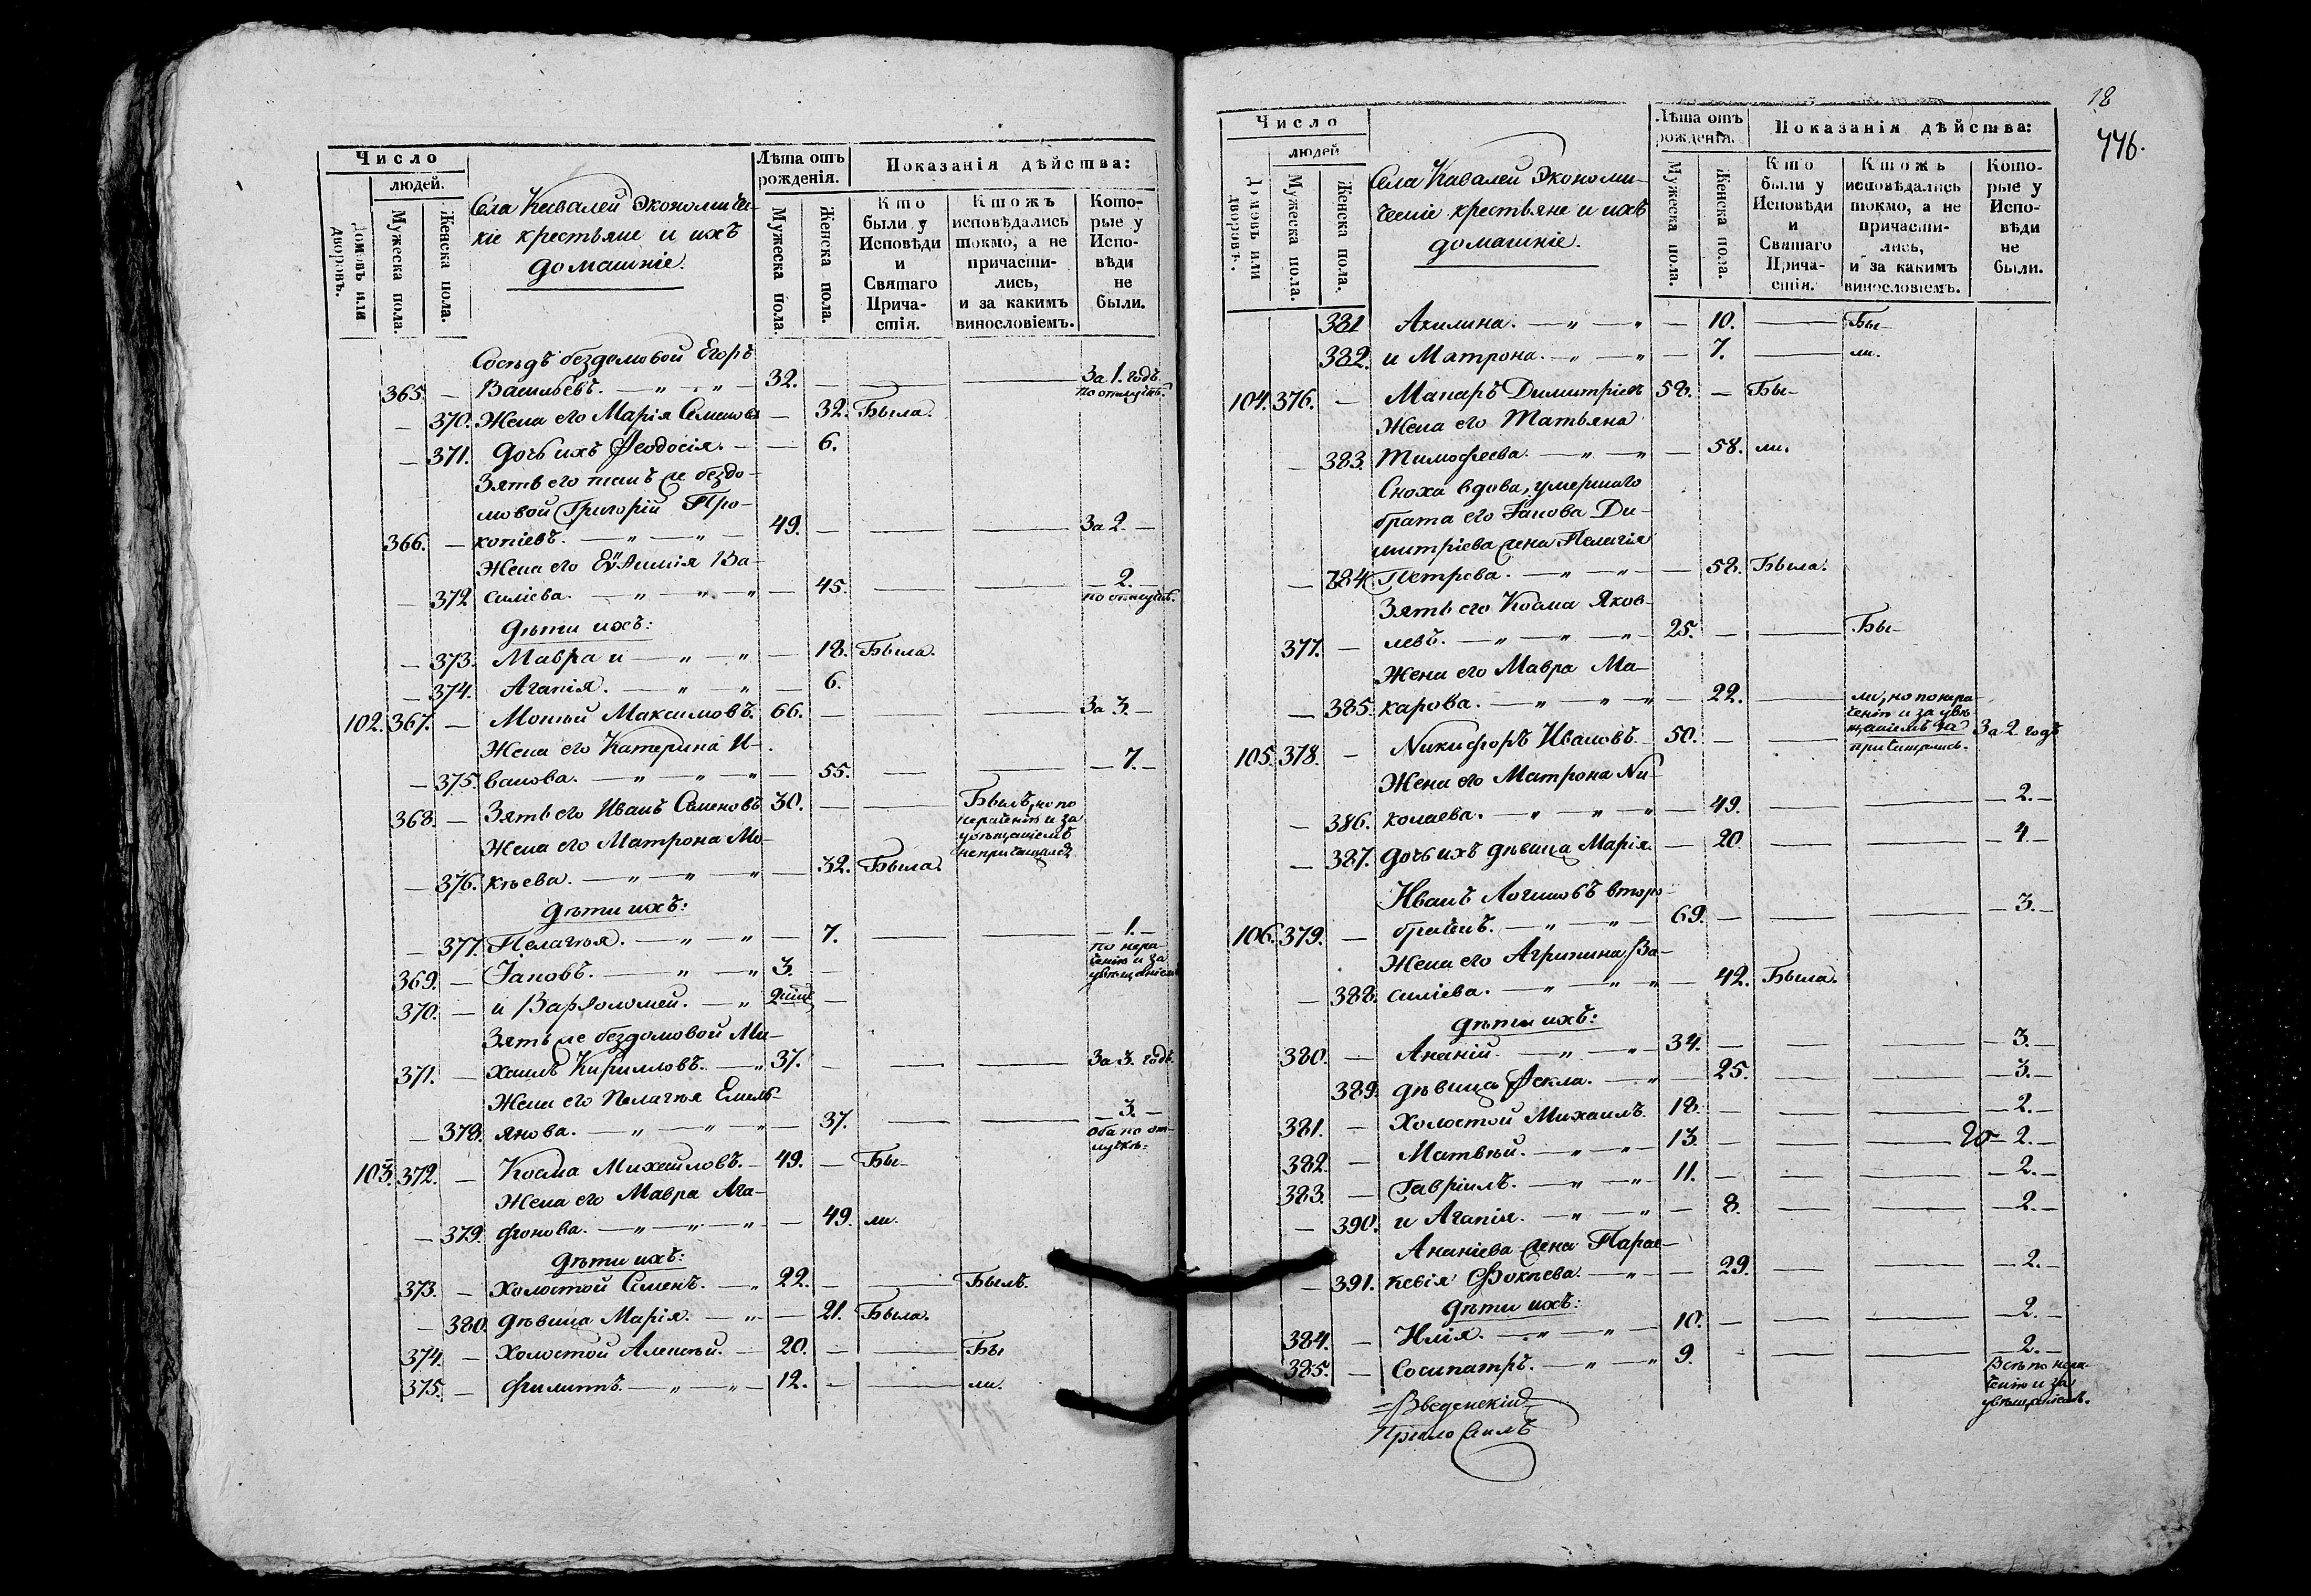 Число
людей.
Домовъ или дворовъ.
Мужеска пола.
Женска пола.
Села Кивалей Экономиче-
кіе крестьяне и ихъ
домашніе.
Лѣта отъ рожденія.
Мужеска пола.
Женска пола.
Показанія дѣйства:
Кто были у Исповѣди и Святаго Прича-стія.
Ктожъ исповѣдались токмо, а не причасти-лись, и за какимъ винословіемъ.
Кото-рые у Испо-вѣди не были.
Сосѣдъ бездомовой Егоръ
365. — Васильевъ. — „ — „ — 32. — — — За 1. годъ
по отлучкѣ.
— 370. Жена его Марія Семенова — 32. Была.
— 371. Дочь ихъ Феодосія. — — 6.
Зять его же бездо-
мовой Григорій Про-
366. — копіевъ. — „ — „ — 49. — — — За 2. —
Жена его Евѳимія Ва-
— 372 силіева. — „ — „ — „ — 45. — — — 2. —
по отлучкѣ.
Дѣти ихъ:
— 373. Мавра и — „ — „ — 18. Была.
— 374. Агапія. — „ — „ — 6.
102. 367. — Мокѣй Максимовъ. 66. — — — За 3. —
Жена его Катерина И-
— 375. ванова. — „ — „ — „ — 55. — — — 7. —
368. — Зять его Иванъ Семеновъ 30. — — Былъ, но по
нераченію и за
увѣщаніемъ
непричащался
Жена его Матрона Мо-
— 376. кѣева. — „ — „ — „ — 32. Была.
Дѣти ихъ:
— 377. Пелагѣя. — „ — „ — 7. — — — 1. —
по нера-
ченію и за
увѣщаніемъ
369. — Іаковъ. — „ — „ 3. —
370. — и Варѳоломей. — „ 2
Зять же бездомовой Ми-
371. — хаилъ Кирилловъ. — „ 37. — — — За 3. годъ.
Жена его Пелагѣя Емель-
— 378. янова. — „ — „ — „ — 37. — — — 3. —
оба по от-
лучкѣ.
103. 372. — Косма Михаиловъ. — 49. — Бы-
Жена его Мавра Ага-
— 379. фонова. — „ — „ — „ — 49. ли.
Дѣти ихъ:
373. — Холостой Семенъ. — „ 22. — — Былъ.
— 380. Дѣвица Марія. — „ — — 21. Была.
374. — Холостой Алексѣй. — 20. — — Бы
375. — Филиппъ. — „ — „ — 12. — — ли.
18
446.
Число
людей
Домовъ или дворовъ.
Мужеска пола.
Женска пола.
Села Кавалей Экономи-
ческіе крестьяне и ихъ
домашніе.
Лѣта отъ рожденія.
Мужеска пола.
Женска пола.
Показанія дѣйства:
Кто были у Исповѣди и Святаго Прича-стія.
Ктожъ исповѣдались токмо, а не причасти-лись, и за какимъ винословіемъ.
Кото-рые у Испо-вѣди не были.
381 Акилина. — „ — „ — 10. — Бы-
382. и Матрона. — „ — „ — 7. — ли.
104. 376. — Макаръ Димитріевъ 58. — Бы-
Жена его Татьяна
— 383. Тимофеева. — „ — „ — 58. ли.
Сноха вдова, умершаго
брата его Іакова Ди-
митріева жена Пелагія
— 384. Петрова. — „ — „ — 58. Была.
Зять его Косма Яков-
377. — левъ. — „ — „ — „ — 25. — — Бы-
Жена его Мавра Ма-
— 385. карова. — „ — „ — „ — 22. — ли, но по нера-
ченію и за увѣ-
щаніемъ не
причащались.
105. 378. — Никифоръ Ивановъ. 50. — За 2 годъ
Жена его Матрона Ни-
— 386. колаева. — „ — „ — „ — 49. — — — 2. —
— 387. Дочь ихъ дѣвица Марія. — 20 — — — 4 —
Иванъ Логиновъ второ-
106. 379. — брачный. — „ — „ — 69. — — — 3. —
Жена его Агрипина Ва-
— 388. силіева. — „ — „ — „ — 42. Была.
Дѣти ихъ:
380. — Ананій. — „ — „ — 34. — — — 3. —
389. Дѣвица Фекла. — „ — 25. — — — 3. —
381. — Холостой Михаилъ. 18. — — — 2. —
382. — Матвѣй. — „ — „ — 13. — — — 2. —
383. — Гавріилъ. — „ — „ — 11. — — — 2. —
— 390. и Агапія. — „ — „ — 8. — — — 2. —
Ананіева жена Парас-
— 391. кевія Фокіева. — „ — 29. — — — 2. —
Дѣти ихъ:
384. — Илія. — „ — „ — 10. — — — 2. —
385. — Сосипатръ. — „ — „ 9. — — — 2. —
Всѣ по нера-
ченію и за
увѣщаніемъ.
Введенскій